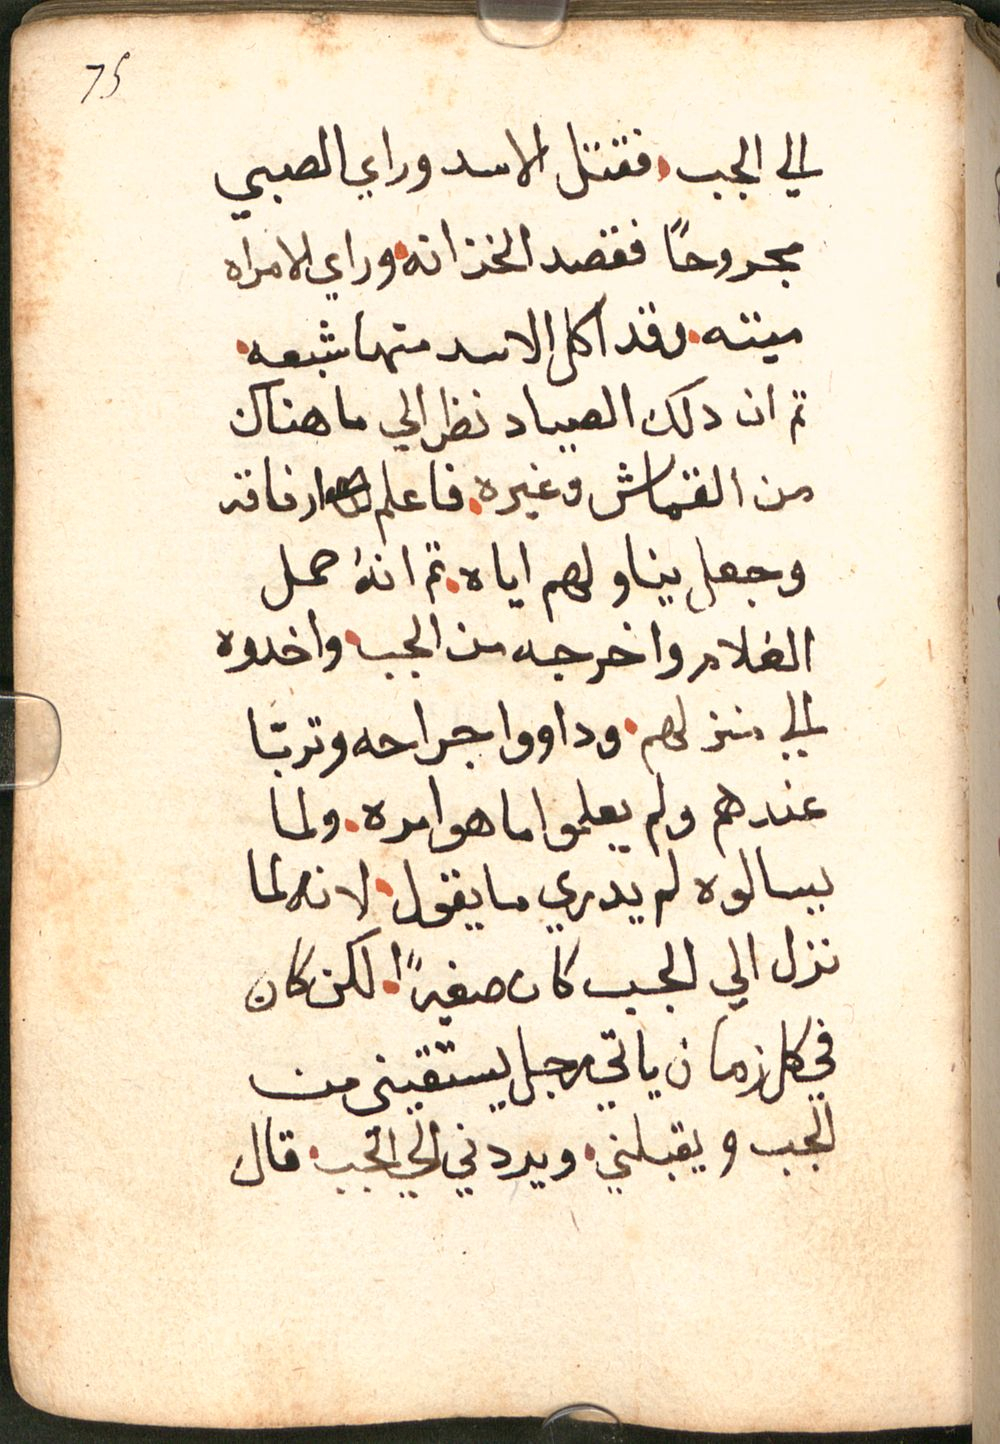 75
الي الجب. فقتل الاسد وراي الصبي
مجروحًا فقصد الخزانه. وراي الامراه
ميته. وقد اكل الاسد منها شبعه.
تم ان دلك الصياد نظر الي ما هناك
من القماش وغيره. فاعلم ارفاقه
وجعل يناولهم اياه. تم انهُ حمل
الغلام واخرجه من الجب. واخدوه
الي منزلهم. وداووا جراحه وتربّا
عندهم ولم يعلموا ما هو امره. ولما
يسالوه لم يدري ما يقول. لانه لما
نزل الي الجب كان صغيرًا. لكن كان
في كل زمان ياتي رجل يستقيني من
الجب ويقبلني. ويردني الي الجب. قال